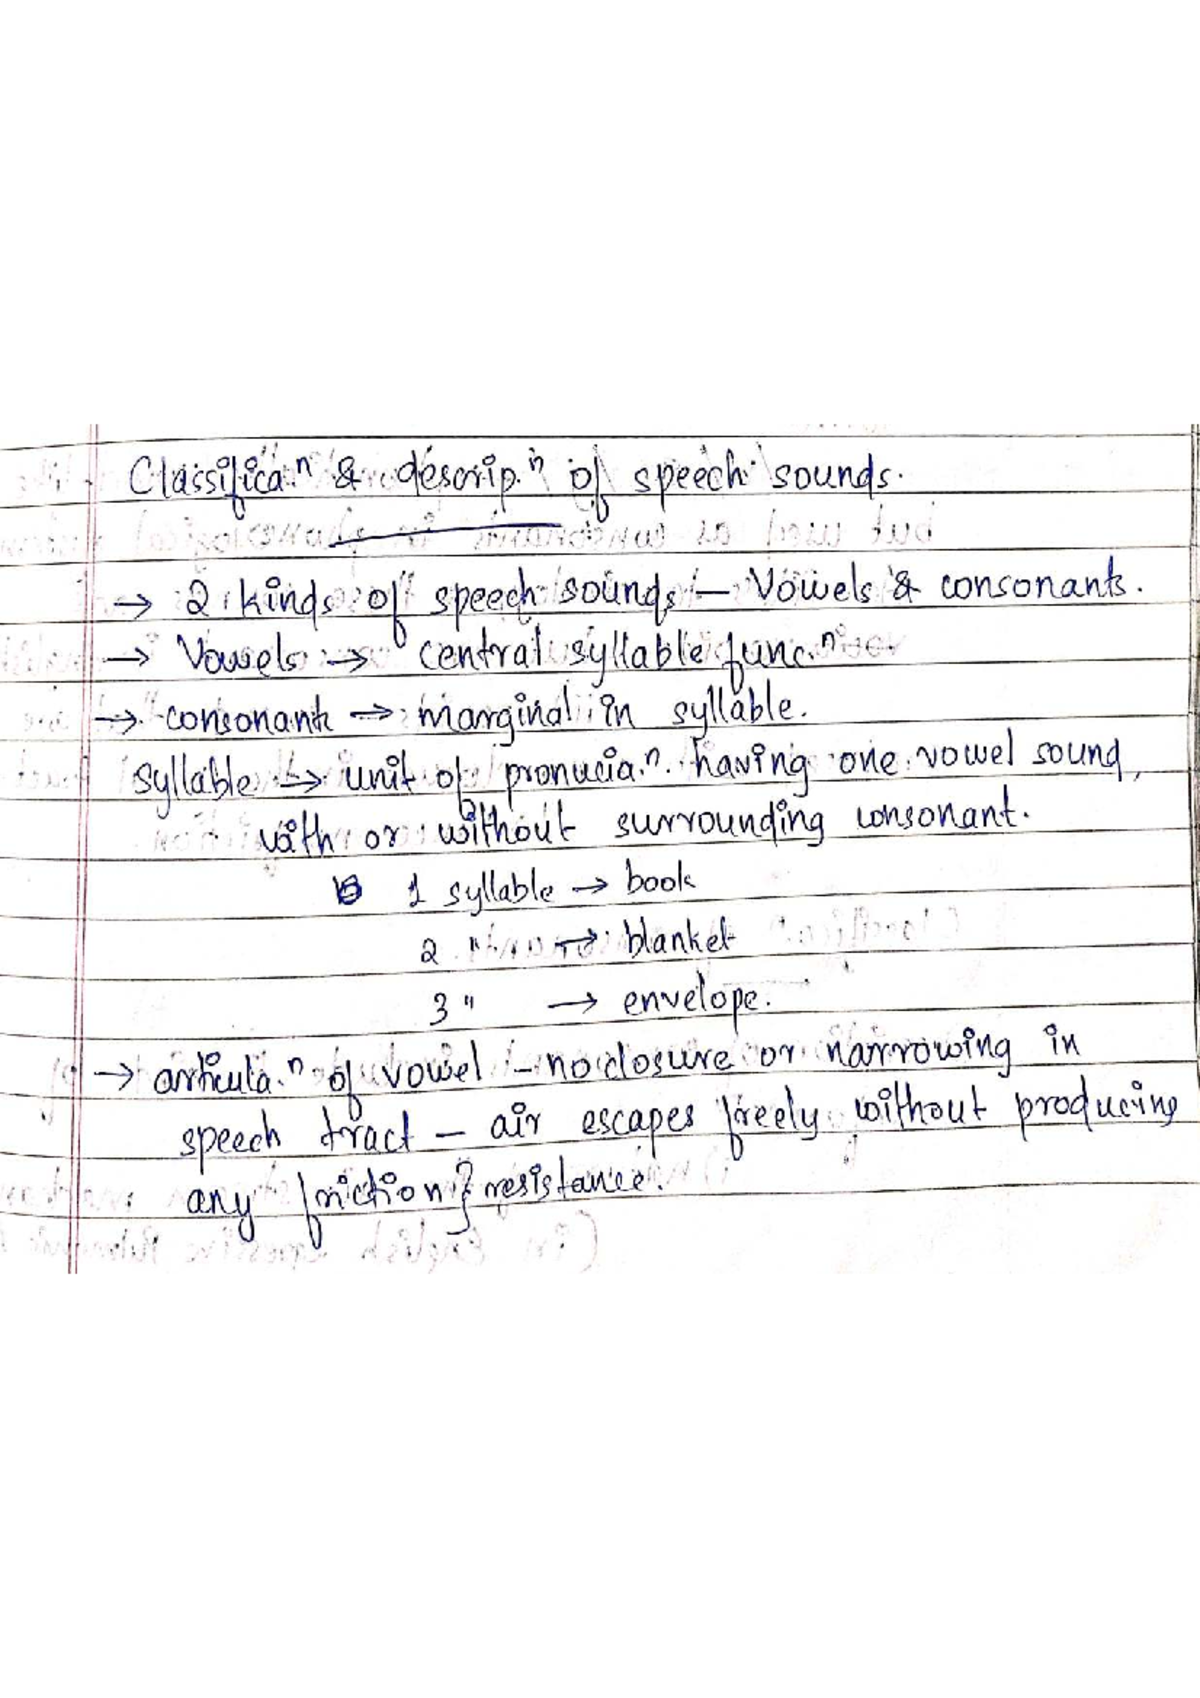 Classifica.ⁿ & descrip.ⁿ of speech sounds.
→ 2 kinds of speech sounds – Vowels & consonants.
→ Vowels → central syllable func.ⁿ
→ consonant → marginal in syllable.
syllable → unit of pronucia.ⁿ having one vowel sound,
with or without surrounding consonant.
1 syllable → book
2 " → blanket
3 " → envelope.
→ articula.ⁿ of vowel – no closure or narrowing in
speech tract – air escapes freely without producing
any friction & resistance.